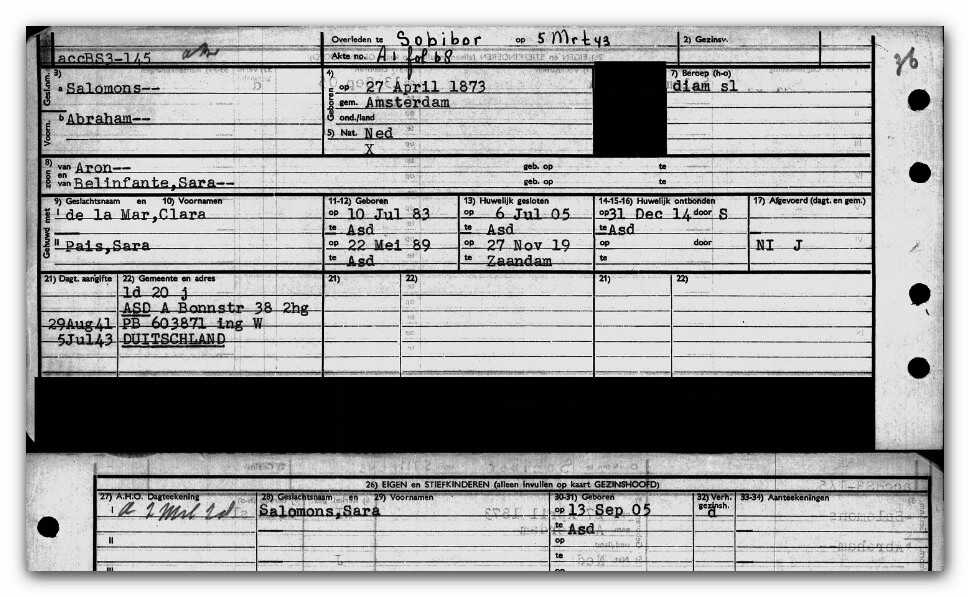 Overleden te Sobibor op 5 Mrt 43 2) Gezinsv.
accBS3-145 Akte no. A1 fol 68
36
Geslnm. 3) a Salomons-- 4) Geboren op 27 April 1873 7) Beroep (h-o)
gem. Amsterdam diam sl
Voorn. b Abraham-- ond./land
5) Nat. Ned
X
8) zoon van Aron-- geb. op te
en van Belinfante,Sara-- geb. op te
9) Geslachtsnaam en 10) Voornamen 11-12) Geboren 13) Huwelijk gesloten 14-15-16) Huwelijk ontbonden 17) Afgevoerd (dagt. en gem.)
Gehuwd met I de la Mar,Clara op 10 Jul 83 op 6 Jul 05 op 31 Dec 14 door S
te Asd te Asd te Asd
II Pais,Sara op 22 Mei 89 op 27 Nov 19 op door NI J
te Asd te Zaandam te
21) Dagt. aangifte 22) Gemeente en adres 21) 22) 21) 22)
ld 20 j
ASD A Bonnstr 38 2hg
29Aug41 PB 603871 ing W
5Jul43 DUITSCHLAND
26) EIGEN en STIEFKINDEREN (alleen invullen op kaart GEZINSHOOFD)
27) A.H.O. Dagteekening 28) Geslachtsnaam en 29) Voornamen 30-31) Geboren 32) Verh. gezinsh. 33-34) Aanteekeningen
I Salomons,Sara op 13 Sep 05 d
te Asd
II op
te
III op